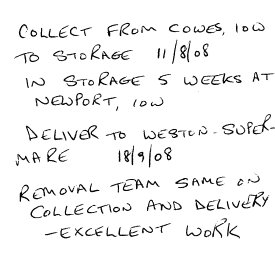 COLLECT FROM COWES, IOW
TO STORAGE 11/8/08
IN STORAGE 5 WEEKS AT
NEWPORT, IOW
DELIVER TO WESTON-SUPER-
MARE 18/9/08
REMOVAL TEAM SAME ON
COLLECTION AND DELIVERY
-EXCELLENT WORK